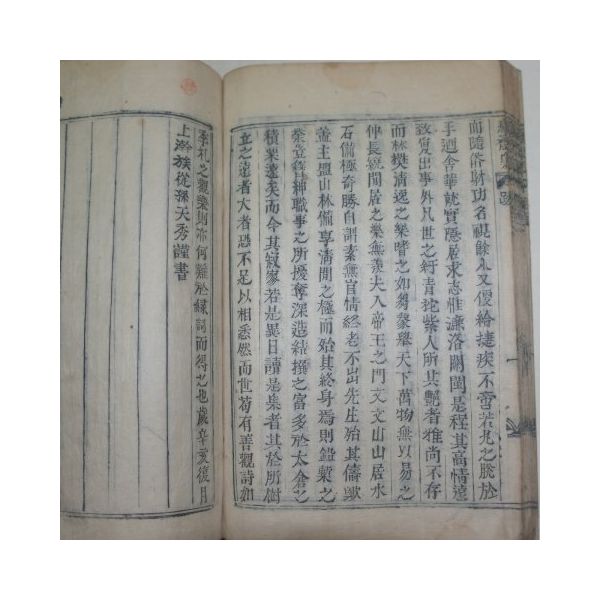 而隨俗財功名視餘人又儍給捷疾不啻若兔之脫於
手迺舍華就實隱居求志惟濂洛關閩是程其高情遠
致實出事外凡世之紆青拕紫人所共艶者雅尚不存
而林樊清逸之樂嗜之如芻豢舉天下萬物無以易之
仲長統閒居之樂無羨夫入帝王之門文文山山居水
石備極奇勝自謂素無宦情終老不出先生殆其儔歟
蓋主盟山林備享清閒之極而始其終身焉則鉛槧之
業豈簪紳職事之所擾奪深造結撰之富多於太倉之
積粟遠矣而令其寂寥若是異日讀是集者其於所樹
立之遠者大者恐不足以相悉然而世苟有善觀詩如
季札之觀樂則亦何難於緣詞而得之也歲辛亥復月
上澣族從孫天秀謹書